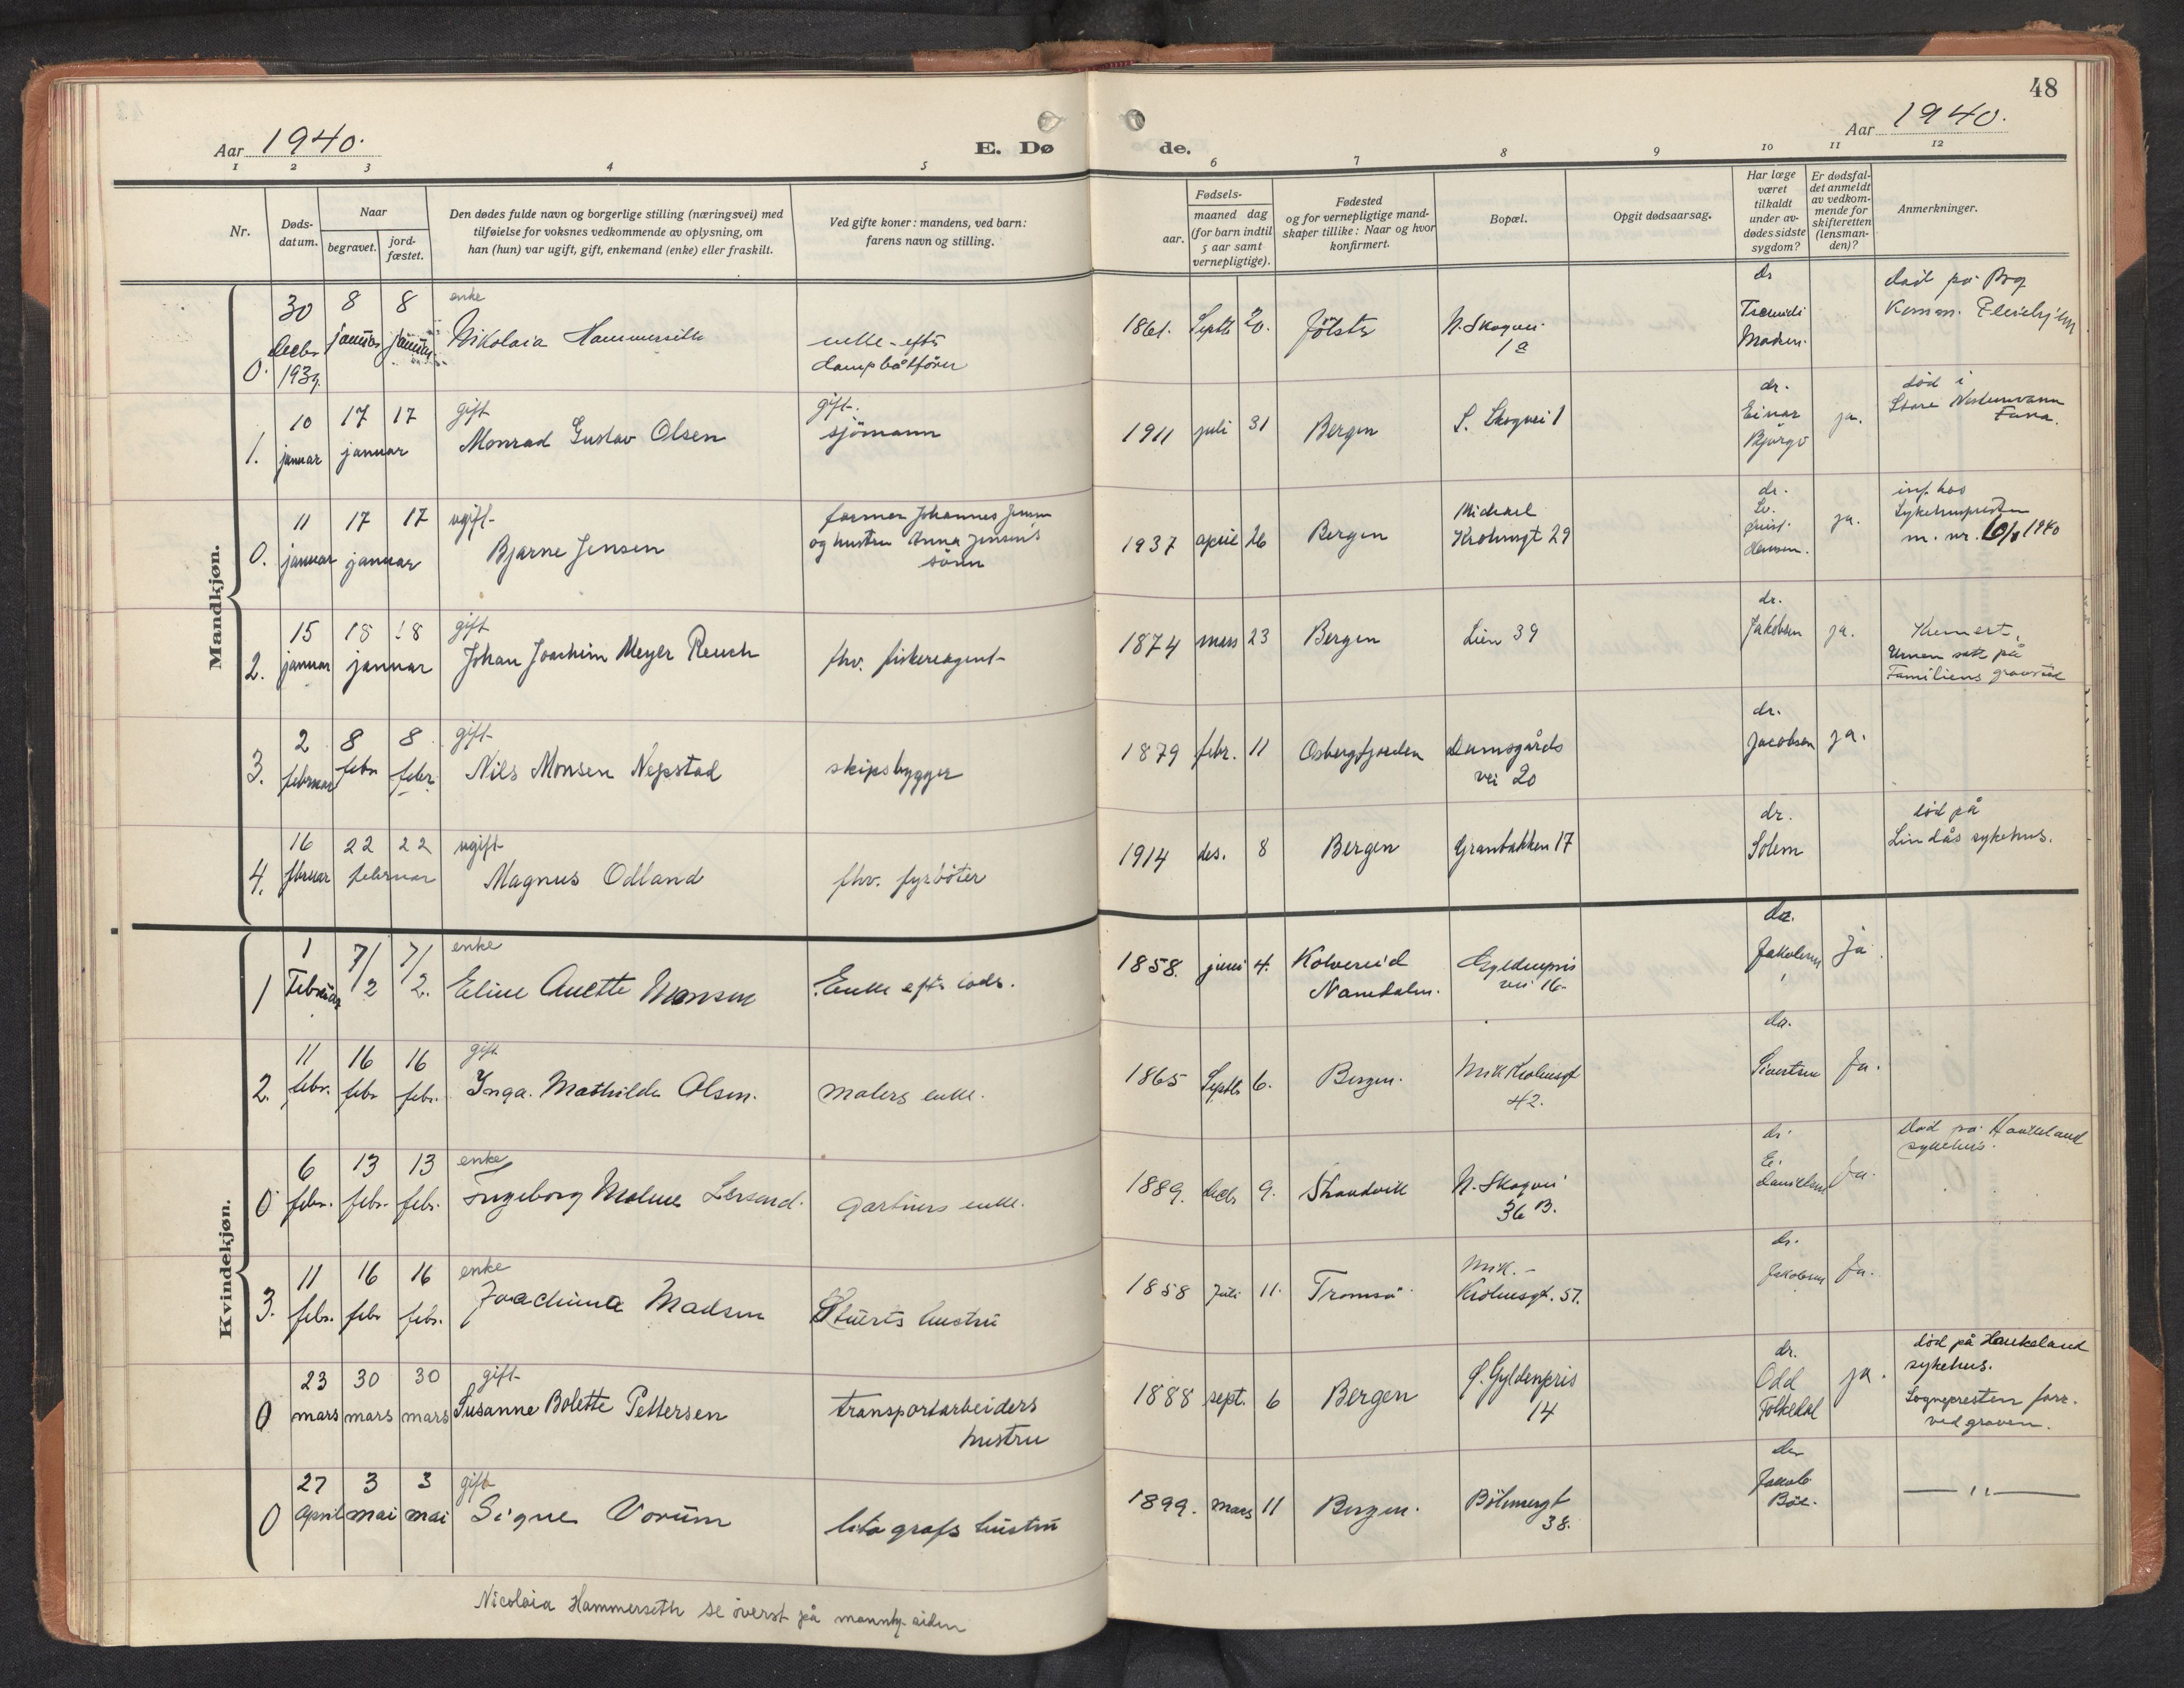 48
Aar 1940.
E. Dø
de.
Aar 1940.
1 2 3 4 5 6 7 8 9 10 11 12
Nr.
Døds-
datum.
Naar
begravet.
jord-
fæstet.
Den dødes fulde navn og borgerlige stilling (næringsvei) med
tilføielse for voksnes vedkommende av oplysning, om
han (hun) var ugift, gift, enkemand (enke) eller fraskilt.
Ved gifte koner: mandens, ved barn:
farens navn og stilling.
Fødsels-
aar.
maaned dag
(for barn indtil
5 aar samt
vernepligtige).
Fødested
og for vernepligtige mand-
skaper tillike: Naar og hvor
konfirmert.
Bopæl.
Opgit dødsaarsag.
Har læge
været
tilkaldt
under av-
dødes sidste
sygdom?
Er dødsfal-
det anmeldt
av vedkom-
mende for
skifteretten
(lensman-
den)?
Anmerkninger.
Mandkjøn.
0. 30 Decbr 1939. 8 januar 8 januar
enke
Nikolaia Hammerseth
enke efts
dampbåtfører
1861. Septb 20. Jölster N. Skogvei
1a
dr
Madsen.
død på
1. 10 januar 17 17 januar
gift
Monrad Gustav Olsen
gift.
sjömann
1911 juli 31 Bergen S. Skogvei 1
dr.
Einar
Bjørgo
ja.
død i
Store
Fana.
0. 11 januar 17 17 januar
ugift
Bjarne Jensen
former Johannes Jensen
og hustru Anna Jensen's
sønn
1937 april 26 Bergen
Michael
Krohnsgt 29
dr.
Hansen.
ja.
inf. hos
Sykehuspresten
m. nr. 10/ 1940
2. 15 januar 18 18 januar
gift
Johan Joachim Meyer Reusch
fhv. fiskereagent
1874 mars 23 Bergen Lien 39
dr.
Jakobsen ja.
Kremert.
Urnen satt på
Familiens gravsted
3. 2 februar 8 febr 8 febr.
gift
Nils Monsen Nepstad
skipsbygger
1879 febr. 11 Osbergfjorden Damsgårds
vei 20
dr.
Jacobsen ja.
4. 16 februar 22 22 februar
ugift
Magnus Odland
fhv. fyrböter
1914 des. 8 Bergen Granbakken 17
dr.
Solem
død på
Lindås sykehus.
Kvindekjøn.
1 1 Februar 7/2 7/2.
enke
Eline Anette Monsen
Enke efts lods.
1858. juni 4. Kolvereid
Namdalen.
Gyldenpris
vei 16.
dr.
Jakobsen ja.
2. 11 febr. 16 febr 16 febr.
gift
Inga Mathilde Olsen.
malers enke.
1865 Septb 6. Bergen. Mik Krohnsgt
42.
dr.
Sivertsen Ja.
0 6 febr. 13 febr. 13 febr.
enke
Ingeborg Malene
gartners enke.
1889. Decb 9. Strandvik N. Skogvei
36 B.
dr.
Danielsen Ja.
død på Haukeland
sykehus.
3. 11 febr. 16 febr 16 febr.
enke
Joachima Madsen
Stuerts hustru
1858 Juli 11. Tromsø.
Mik.
Krohnsgt. 57.
dr.
Jakobsen Ja.
0 23 mars 30 mars 30 mars
gift
Susanne Bolette Pettersen
transportarbeiders
hustru
1888 sept. 6 Bergen Ø. Gyldenpris
14
dr.
Odd
Folkedal
ja.
død på Haukeland
sykehus.
Sognepresten forr.
ved graven.
0 27 April 3 mai 3 mai
gift
Signe Vorum
litografs hustru
1899. mars 11 Bergen. Böhmergt
38.
dr
Jakob
Böe.
— " —
Nicolaia Hammerseth se øverst på mannkj. siden